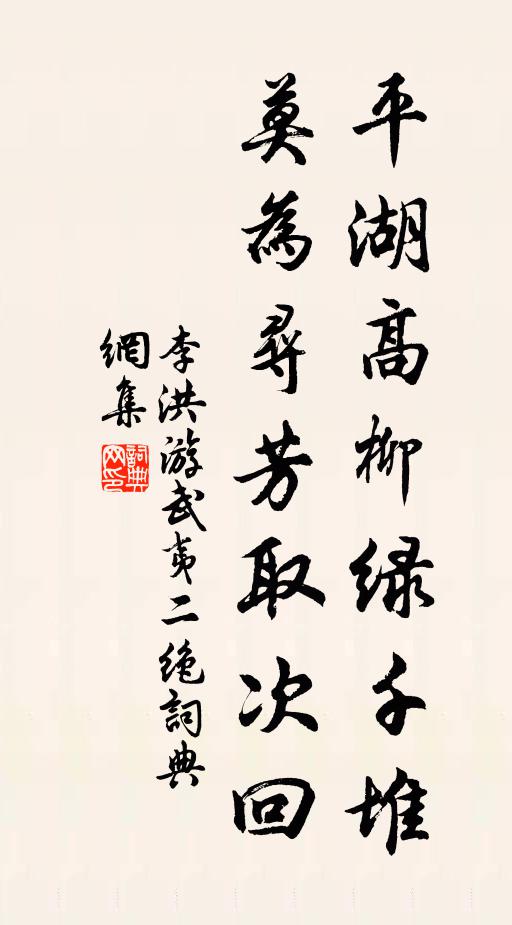 平湖高柳緑千堆
莫為尋芳取次回
李洪游武夷二絶詞典
網集
詞典
网印